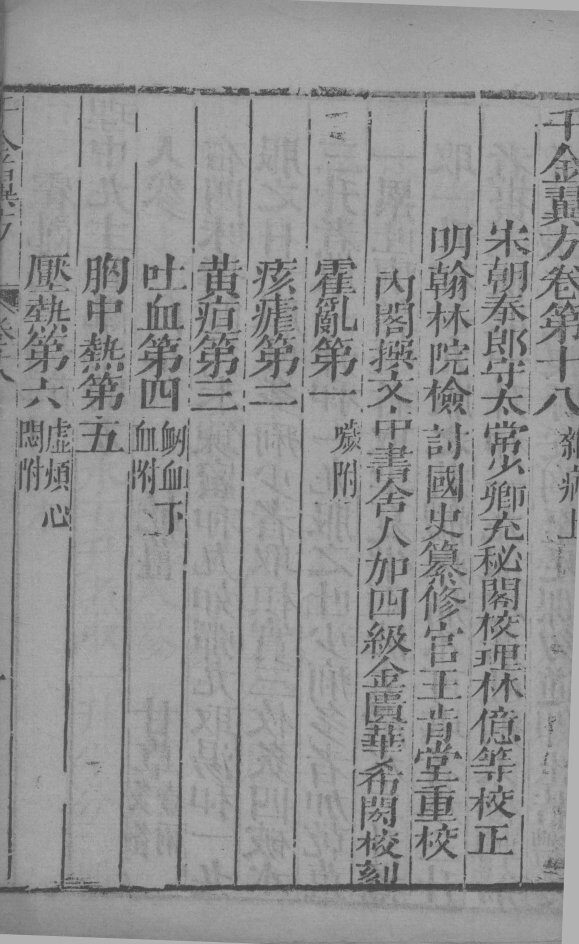 千金翼方卷第十八 雜病上
宋朝奉郎守太常少卿充秘閣校理林億等校正
明翰林院檢討國史纂修官王肯堂重校
內閣撰文中書舍人加四級金匱華希閎校刻
霍亂第一 噦附
痎瘧第二
黃疸第三
吐血第四 衂血下血附
胸中熱第五
壓熱第六 虛煩心悶附